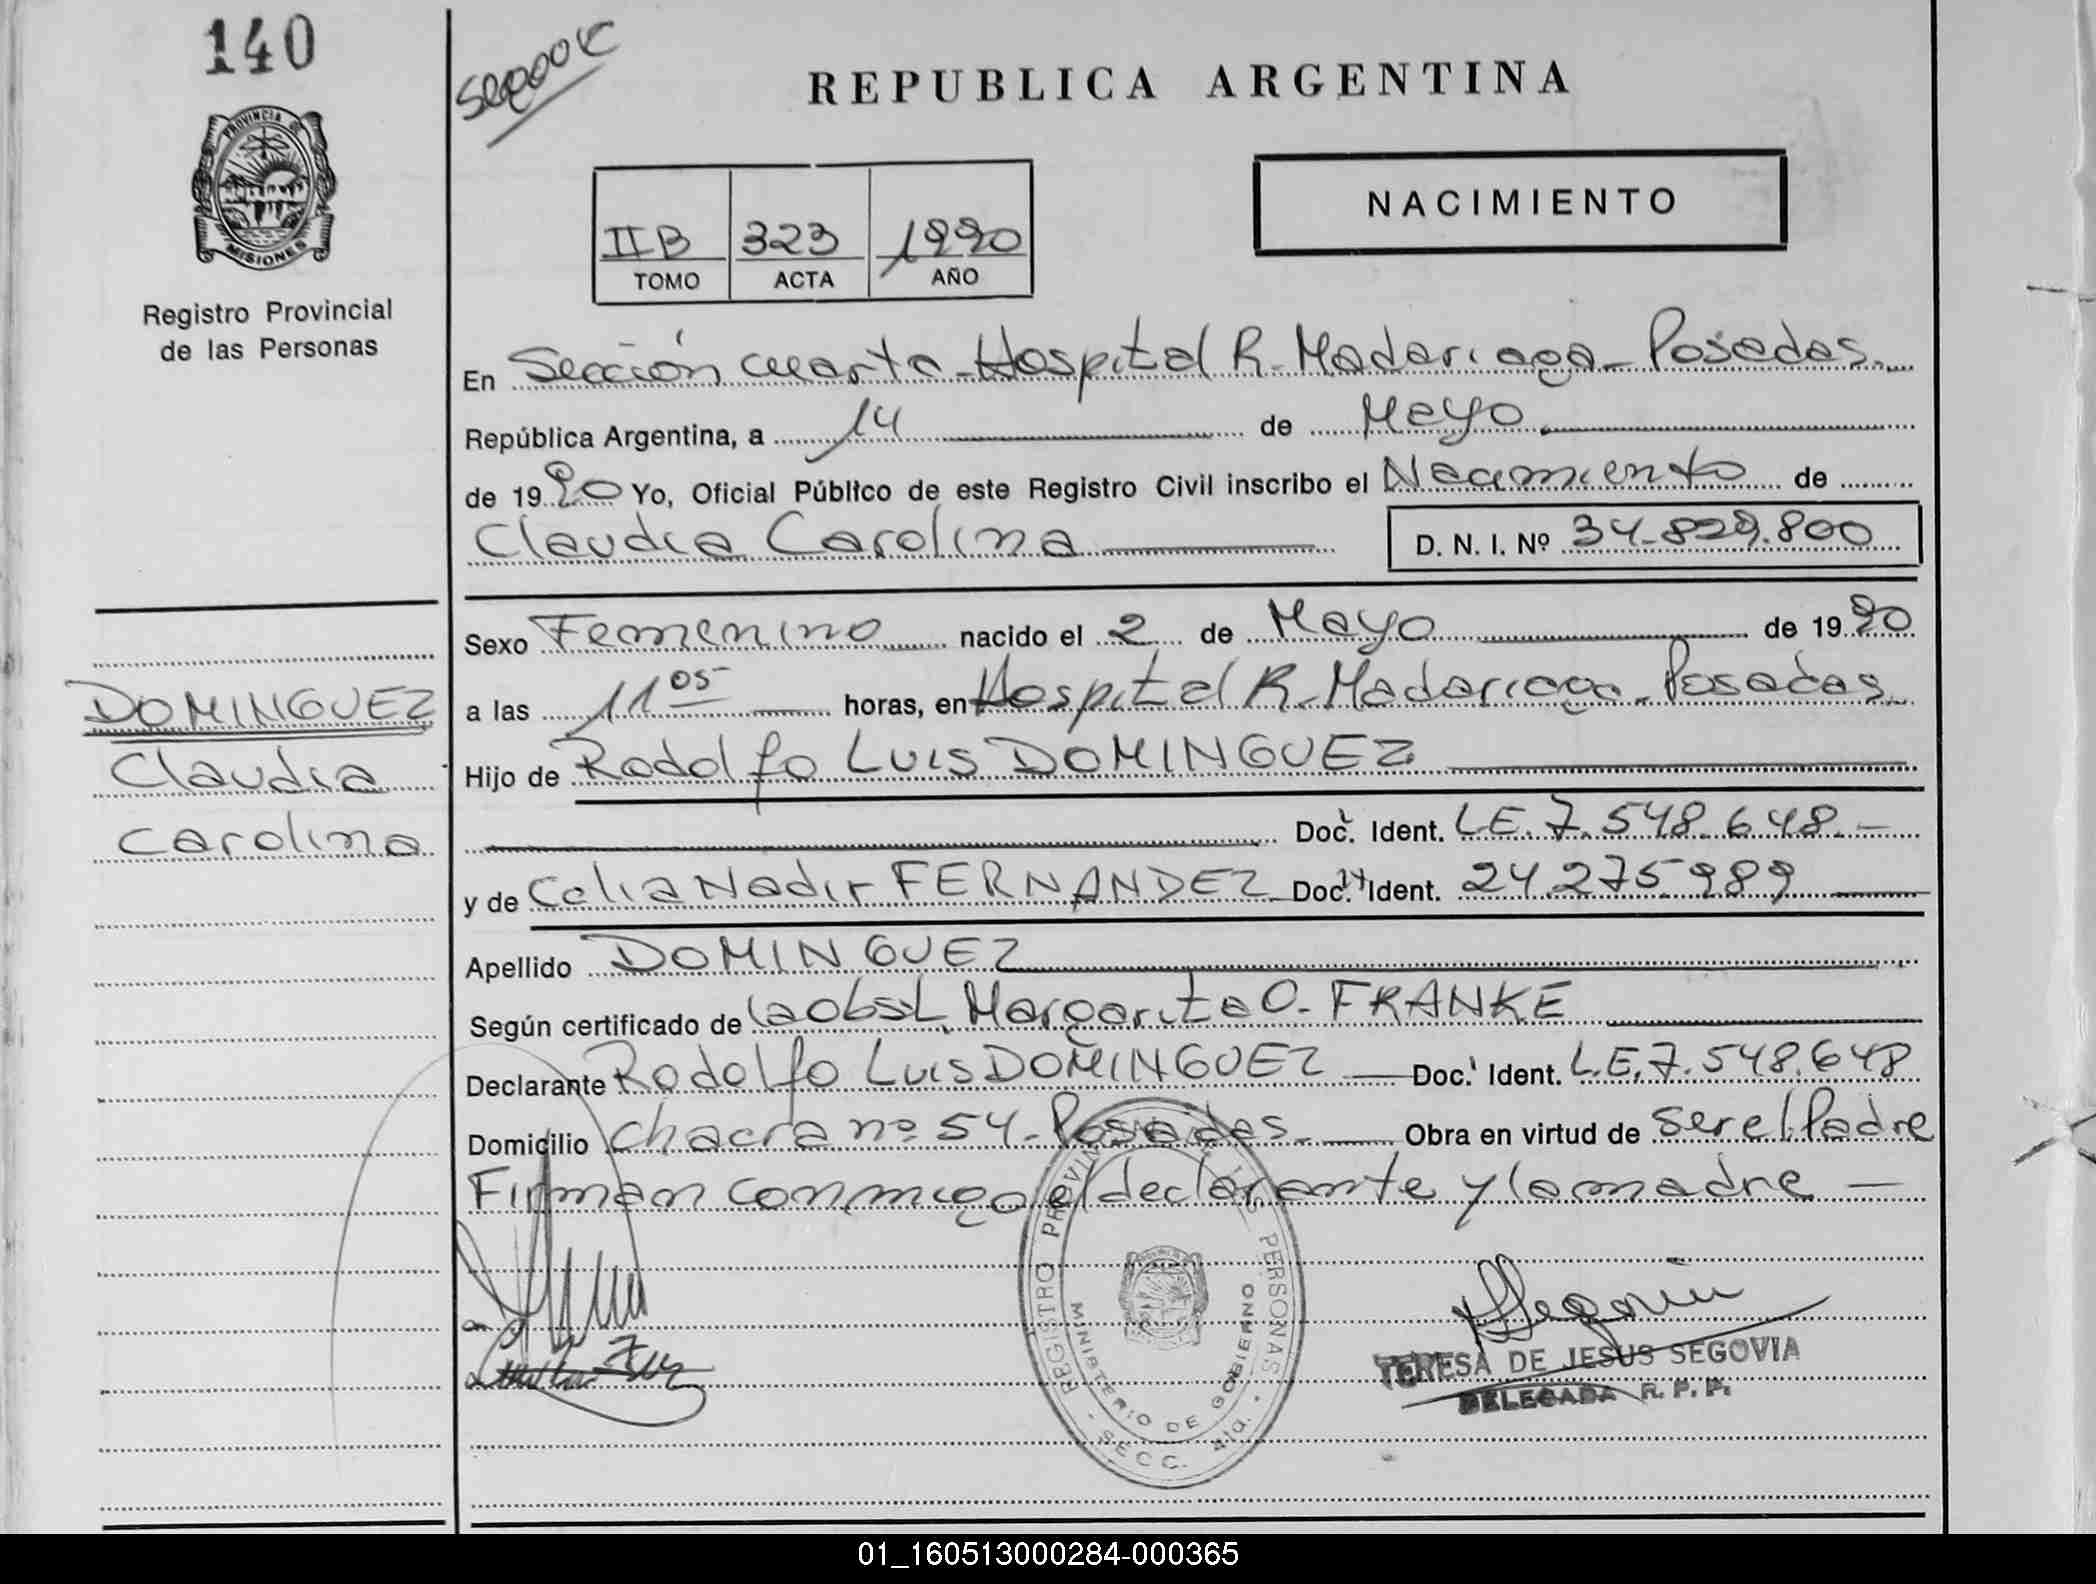 140
PROVINCIA DE
MISIONES
Registro Provincial
de las Personas
REPUBLICA ARGENTINA
NACIMIENTO
II B 323 1990
TOMO ACTA AÑO
En Sección cuarta - Hospital R. Madariaga - Posadas.
República Argentina, a 14 de Mayo
de 1990 Yo, Oficial Público de este Registro Civil inscribo el Nacimiento de
Claudia Carolina D. N. I. Nº 34.829.800
Sexo Femenino nacido el 2 de Mayo de 1990
a las 11 05 horas, en Hospital R. Madariaga - Posadas.
DOMINGUEZ
Claudia
Carolina
Hijo de Rodolfo Luis DOMINGUEZ
Doc. Ident. L.E. 7.548.648 -
y de Celia Nadir FERNANDEZ Doc. Ident. 24.275.989
Apellido DOMINGUEZ
Según certificado de la obst. Margarita O. FRANKE
Declarante Rodolfo Luis DOMINGUEZ Doc. Ident. L.E. 7.548.648
Domicilio Chacra nº 54 - Posadas. Obra en virtud de ser el Padre
Firman conmigo el declarante y la madre -
REGISTRO PROVINCIAL DE LAS PERSONAS
MINISTERIO DE GOBIERNO
- SECC. 4ta. -
Segovia
TERESA DE JESUS SEGOVIA
DELEGADA R. P. P.
01_160513000284-000365